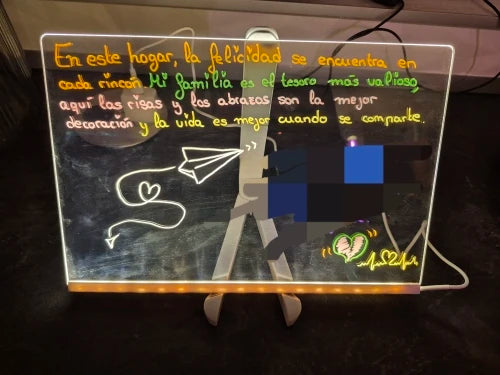 En este hogar, la felicidad se encuentra en
cada rincón Mi familia es el tesoro más valioso,
aquí las risas y los abrazos son la mejor
decoración y la vida es mejor cuando se comparte.